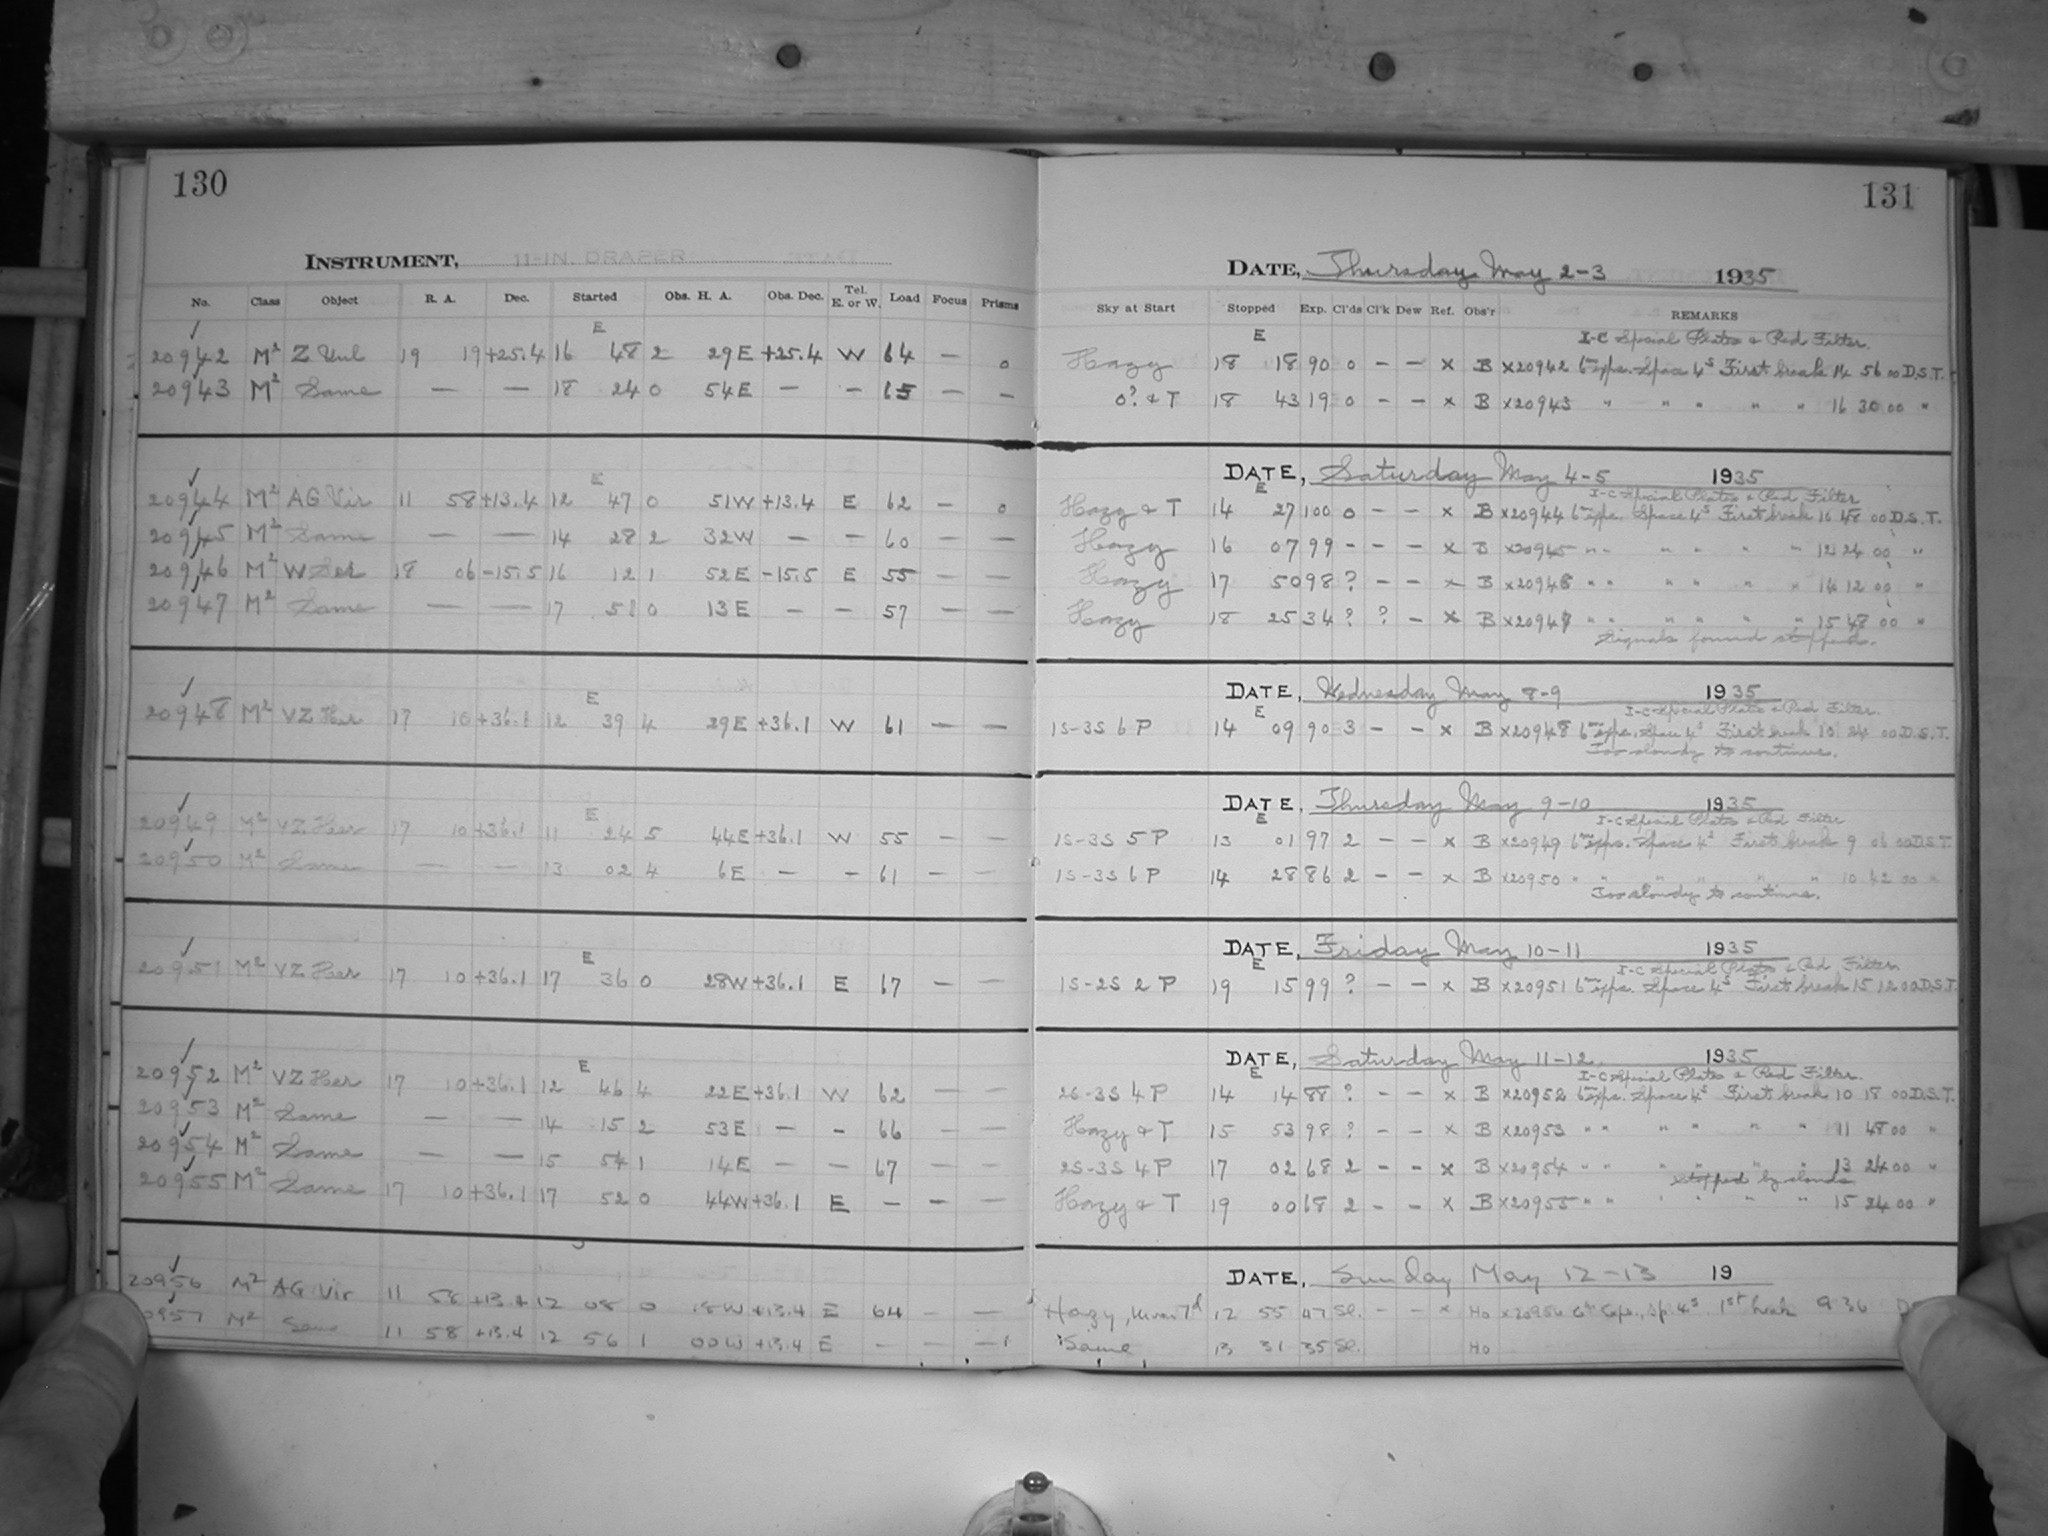 130
INSTRUMENT, 11-IN. DRAPER
No. Class Object R. A. Dec. Started Obs. H. A. Obs. Dec. Tel. E. or W. Load Focus Prisms
E
20942 M² Z Vul 19 19 +25.4 16 48 2 29E +25.4 W 64 — 0
20943 M² Same — — 18 24 0 54E — — 65 — —
E
20944 M² AG Vir 11 58 +13.4 12 47 0 51W +13.4 E 62 — 0
20945 M² Same — — 14 28 2 32W — — 60 — —
20946 M² W Ser 18 06 -15.5 16 12 1 52E -15.5 E 55 — —
20947 M² Same — — 17 51 0 13E — — 57 — —
E
20948 M² VZ Her 17 10 +36.1 12 39 4 29E +36.1 W 61 — —
E
20949 M² VZ Her 17 10 +36.1 11 24 5 44E +36.1 W 55 — —
20950 M² Same — — 13 02 4 6E — — 61 — —
E
20951 M² VZ Her 17 10 +36.1 17 36 0 28W +36.1 E 67 — —
E
20952 M² VZ Her 17 10 +36.1 12 46 4 22E +36.1 W 62 — —
20953 M² Same — — 14 15 2 53E — — 66 — —
20954 M² Same — — 15 54 1 14E — — 67 — —
20955 M² Same 17 10 +36.1 17 52 0 44W +36.1 E — — —
20956 M² AG Vir 11 58 +13.4 12 08 0 18W +13.4 E 64 — —
20957 M² Same 11 58 +13.4 12 56 1 00W +13.4 E — — —
131
DATE, Thursday May 2-3 1935
Sky at Start Stopped Exp. Cl'ds Cl'k Dew Ref. Obs'r REMARKS
E I-C Special Plates & Red Filter.
Hazy 18 18 90 0 — — x B x20942 6 exps. Space 4ˢ First break 14 56 00 D.S.T.
0? & T 18 43 19 0 — — x B x20943 " " " " " 16 30 00 "
DATE, Saturday May 4-5 1935
E I-C Special Plates & Red Filter
Hazy & T 14 27 100 0 — — x B x20944 6 exps. Space 4ˢ First break 10 48 00 D.S.T.
Hazy 16 07 99 — — — x B x20945 " " " " " " 12 24 00 "
Hazy 17 50 98 ? — — x B x20946 " " " " " " 14 12 00 "
Hazy 18 25 34 ? ? — x B x20947 " " " " " " 15 48 00 "
Signals found stopped.
DATE, Wednesday May 8-9 1935
E I-C Special Plates & Red Filter.
1S-3S 6 P 14 09 90 3 — — x B x20948 6 exps. Space 4ˢ First break 10 24 00 D.S.T.
Too cloudy to continue.
DATE, Thursday May 9-10 1935
E I-C Special Plates & Red Filter
1S-3S 5 P 13 01 97 2 — — x B x20949 6 exps. Space 4ˢ First break 9 06 00 D.S.T.
1S-3S 6 P 14 28 86 2 — — x B x20950 " " " " " " 10 42 00 "
Too cloudy to continue.
DATE, Friday May 10-11 1935
E I-C Special Plates & Red Filter
1S-2S 2 P 19 15 99 ? — — x B x20951 6 exps. Space 4ˢ First break 15 12 00 D.S.T.
DATE, Saturday May 11-12 1935
E I-C Special Plates & Red Filter.
2S-3S 4 P 14 14 88 ? — — x B x20952 6 exps. Space 4ˢ First break 10 18 00 D.S.T.
Hazy & T 15 53 98 ? — — x B x20953 " " " " " 11 48 00 "
2S-3S 4 P 17 02 68 2 — — x B x20954 " " " " " 13 24 00 "
Stopped by clouds
Hazy & T 19 00 68 2 — — x B x20955 " " " " " 15 24 00 "
DATE, Sunday May 12-13 19
Hazy, 12 55 47 Sl. — — x Ho x20956 6 Exps., Sp. 4ˢ. 1st break 9 36
Same 13 31 35 Sl. Ho